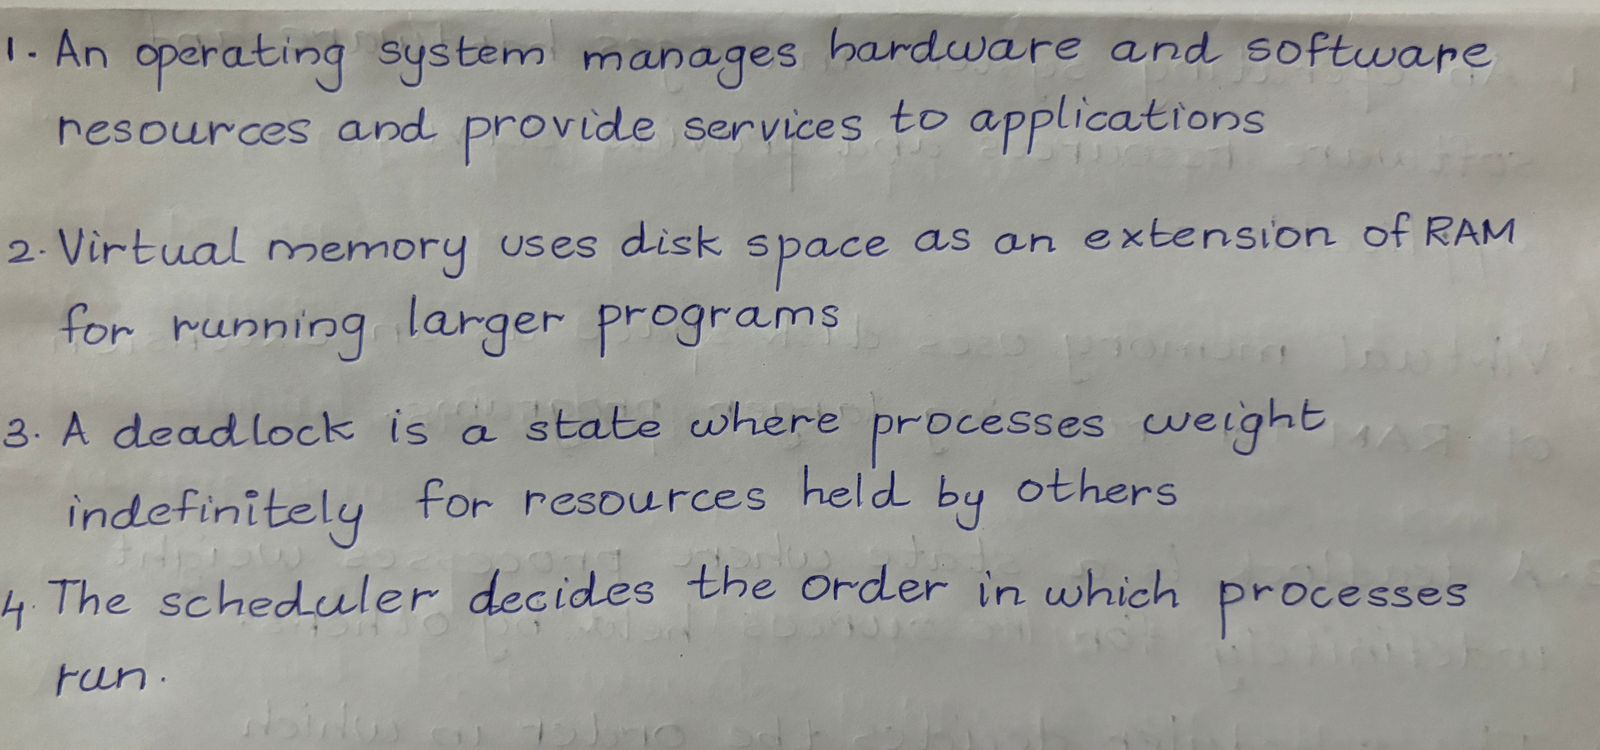 1. An operating system manages hardware and software
resources and provide services to applications
2. Virtual memory uses disk space as an extension of RAM
for running larger programs
3. A deadlock is a state where processes weight
indefinitely for resources held by others
4. The scheduler decides the order in which processes
run.